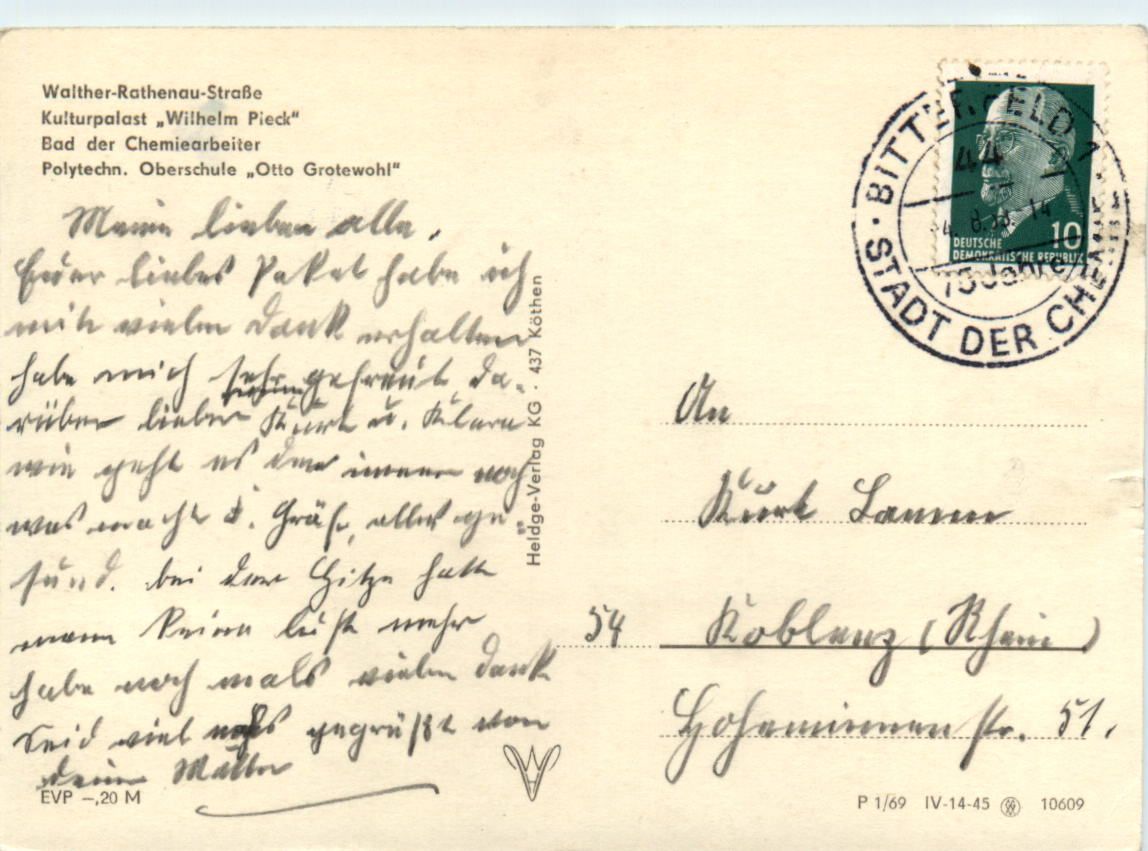 Walther-Rathenau-Straße
Kulturpalast „Wilhelm Pieck“
Bad der Chemiearbeiter
Polytechn. Oberschule „Otto Grotewohl“
Meine lieben alle,
Euer liebes Paket habe ich
mit vielen Dank erhalten
habe mich sehr gefreut da-
rüber lieber Kurt u. Klara
wie geht es den immer noch
was macht d. Gräf, alles ge-
sund. bei der Hitze hatt
mann keine lust mehr
habe noch mals vielen Dank
Seid viel gegrüßt von
deine Mutter
EVP –,20 M
Heldge-Verlag KG · 437 Köthen
BITTERFELD 1
44
8. 14
75 Jahre
STADT DER CHEMIE
10
DEUTSCHE
DEMOKRATISCHE REPUBLIK
An
Kurt
54 Koblenz (Rhein)
str. 51.
P 1/69 IV-14-45 10609